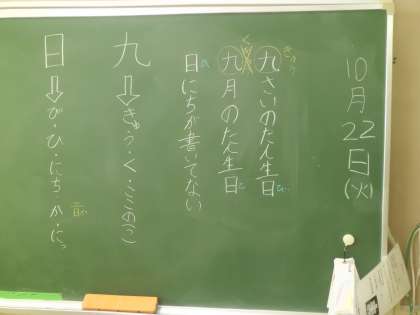 10月22日(火)
九さいのたん生日
九月のたん生日
日にちが書いてない
九⇒きゅう・く・ここの(つ)
日⇒び・ひ・にち か・にっ